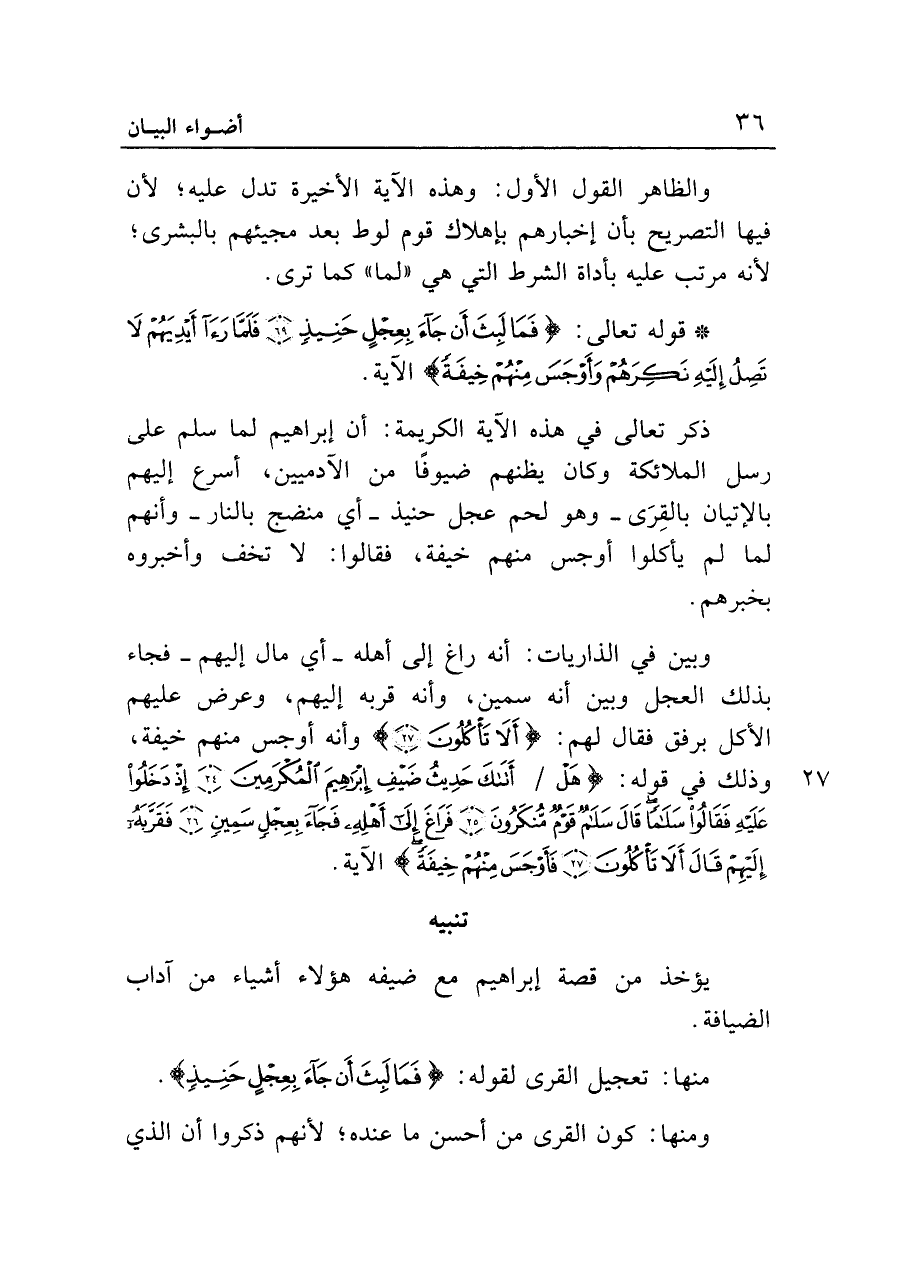 ٣٦ أضـواء البيـان
والظاهر القول الأول: وهذه الآية الأخيرة تدل عليه؛ لأن
فيها التصريح بأن إخبارهم بإهلاك قوم لوط بعد مجيئهم بالبشرى؛
لأنه مرتب عليه بأداة الشرط التي هي «لما» كما ترى.
* قوله تعالى: ﴿فَمَا لَبِثَ أَن جَآءَ بِعِجْلٍ حَنِيذٍ ٦٩ فَلَمَّا رَءَآ أَيْدِيَهُمْ لَا
تَصِلُ إِلَيْهِ نَكِرَهُمْ وَأَوْجَسَ مِنْهُمْ خِيفَةً﴾ الآية.
ذكر تعالى في هذه الآية الكريمة: أن إبراهيم لما سلم على
رسل الملائكة وكان يظنهم ضيوفًا من الآدميين، أسرع إليهم
بالإتيان بالقِرَى ـ وهو لحم عجل حنيذ ـ أي منضج بالنار ـ وأنهم
لما لم يأكلوا أوجس منهم خيفة، فقالوا: لا تخف وأخبروه
بخبرهم.
وبين في الذاريات: أنه راغ إلى أهله ـ أي مال إليهم ـ فجاء
بذلك العجل وبين أنه سمين، وأنه قربه إليهم، وعرض عليهم
الأكل برفق فقال لهم: ﴿أَلَا تَأْكُلُونَ ٢٧﴾ وأنه أوجس منهم خيفة،
وذلك في قوله: ﴿هَلْ / أَتَىٰكَ حَدِيثُ ضَيْفِ إِبْرَٰهِيمَ ٱلْمُكْرَمِينَ ٢٤ إِذْ دَخَلُوا۟ ٢٧
عَلَيْهِ فَقَالُوا۟ سَلَٰمًا ۖ قَالَ سَلَٰمٌ قَوْمٌ مُّنكَرُونَ ٢٥ فَرَاغَ إِلَىٰٓ أَهْلِهِۦ فَجَآءَ بِعِجْلٍ سَمِينٍ ٢٦ فَقَرَّبَهُۥٓ
إِلَيْهِمْ قَالَ أَلَا تَأْكُلُونَ ٢٧ فَأَوْجَسَ مِنْهُمْ خِيفَةً ۖ﴾ الآية.
تنبيه
يؤخذ من قصة إبراهيم مع ضيفه هؤلاء أشياء من آداب
الضيافة.
منها: تعجيل القرى لقوله: ﴿فَمَا لَبِثَ أَن جَآءَ بِعِجْلٍ حَنِيذٍ﴾.
ومنها: كون القرى من أحسن ما عنده؛ لأنهم ذكروا أن الذي